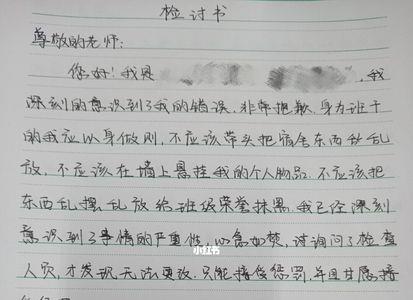 检讨书
尊敬的老师:
您好!我是 ,我
深刻的意识到了我的错误,非常抱歉,身为班干
的我应以身做则,不应该带头把宿舍东西乱乱
放,不应该在墙上悬挂我的个人物品.不应该把
东西乱摆乱放给班级荣誉抹黑.我已经深刻
意识到了事情的严重性,心急如焚,讨询问了检查
人员,才发现无法更改,只能接受惩罚,并且甘愿接
小红书